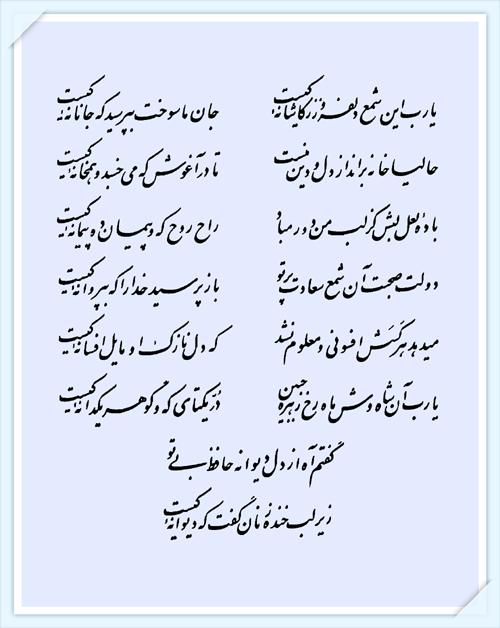 یارب این شمع دلفروز ز کاشانه کیست جان ما سوخت بپرسید که جانانه کیست
حالیا خانه برانداز دل و دین منست تا در آغوش که می خسبد و همخانه کیست
باده لعل لبش کز لب من دور مباد راح روح که و پیمان ده پیمانه کیست
دولت صحبت آن شمع سعادت پرتو باز پرسید خدا را که به پروانه کیست
میدهد هر کسش افسونی و معلوم نشد که دل نازک او مایل افسانه کیست
یارب آن شاه وش ماه رخ زهره جبین در یکتای که و گوهر یکدانه کیست
گفتم آه از دل دیوانه حافظ بی تو
زیر لب خنده زنان گفت که دیوانه کیست